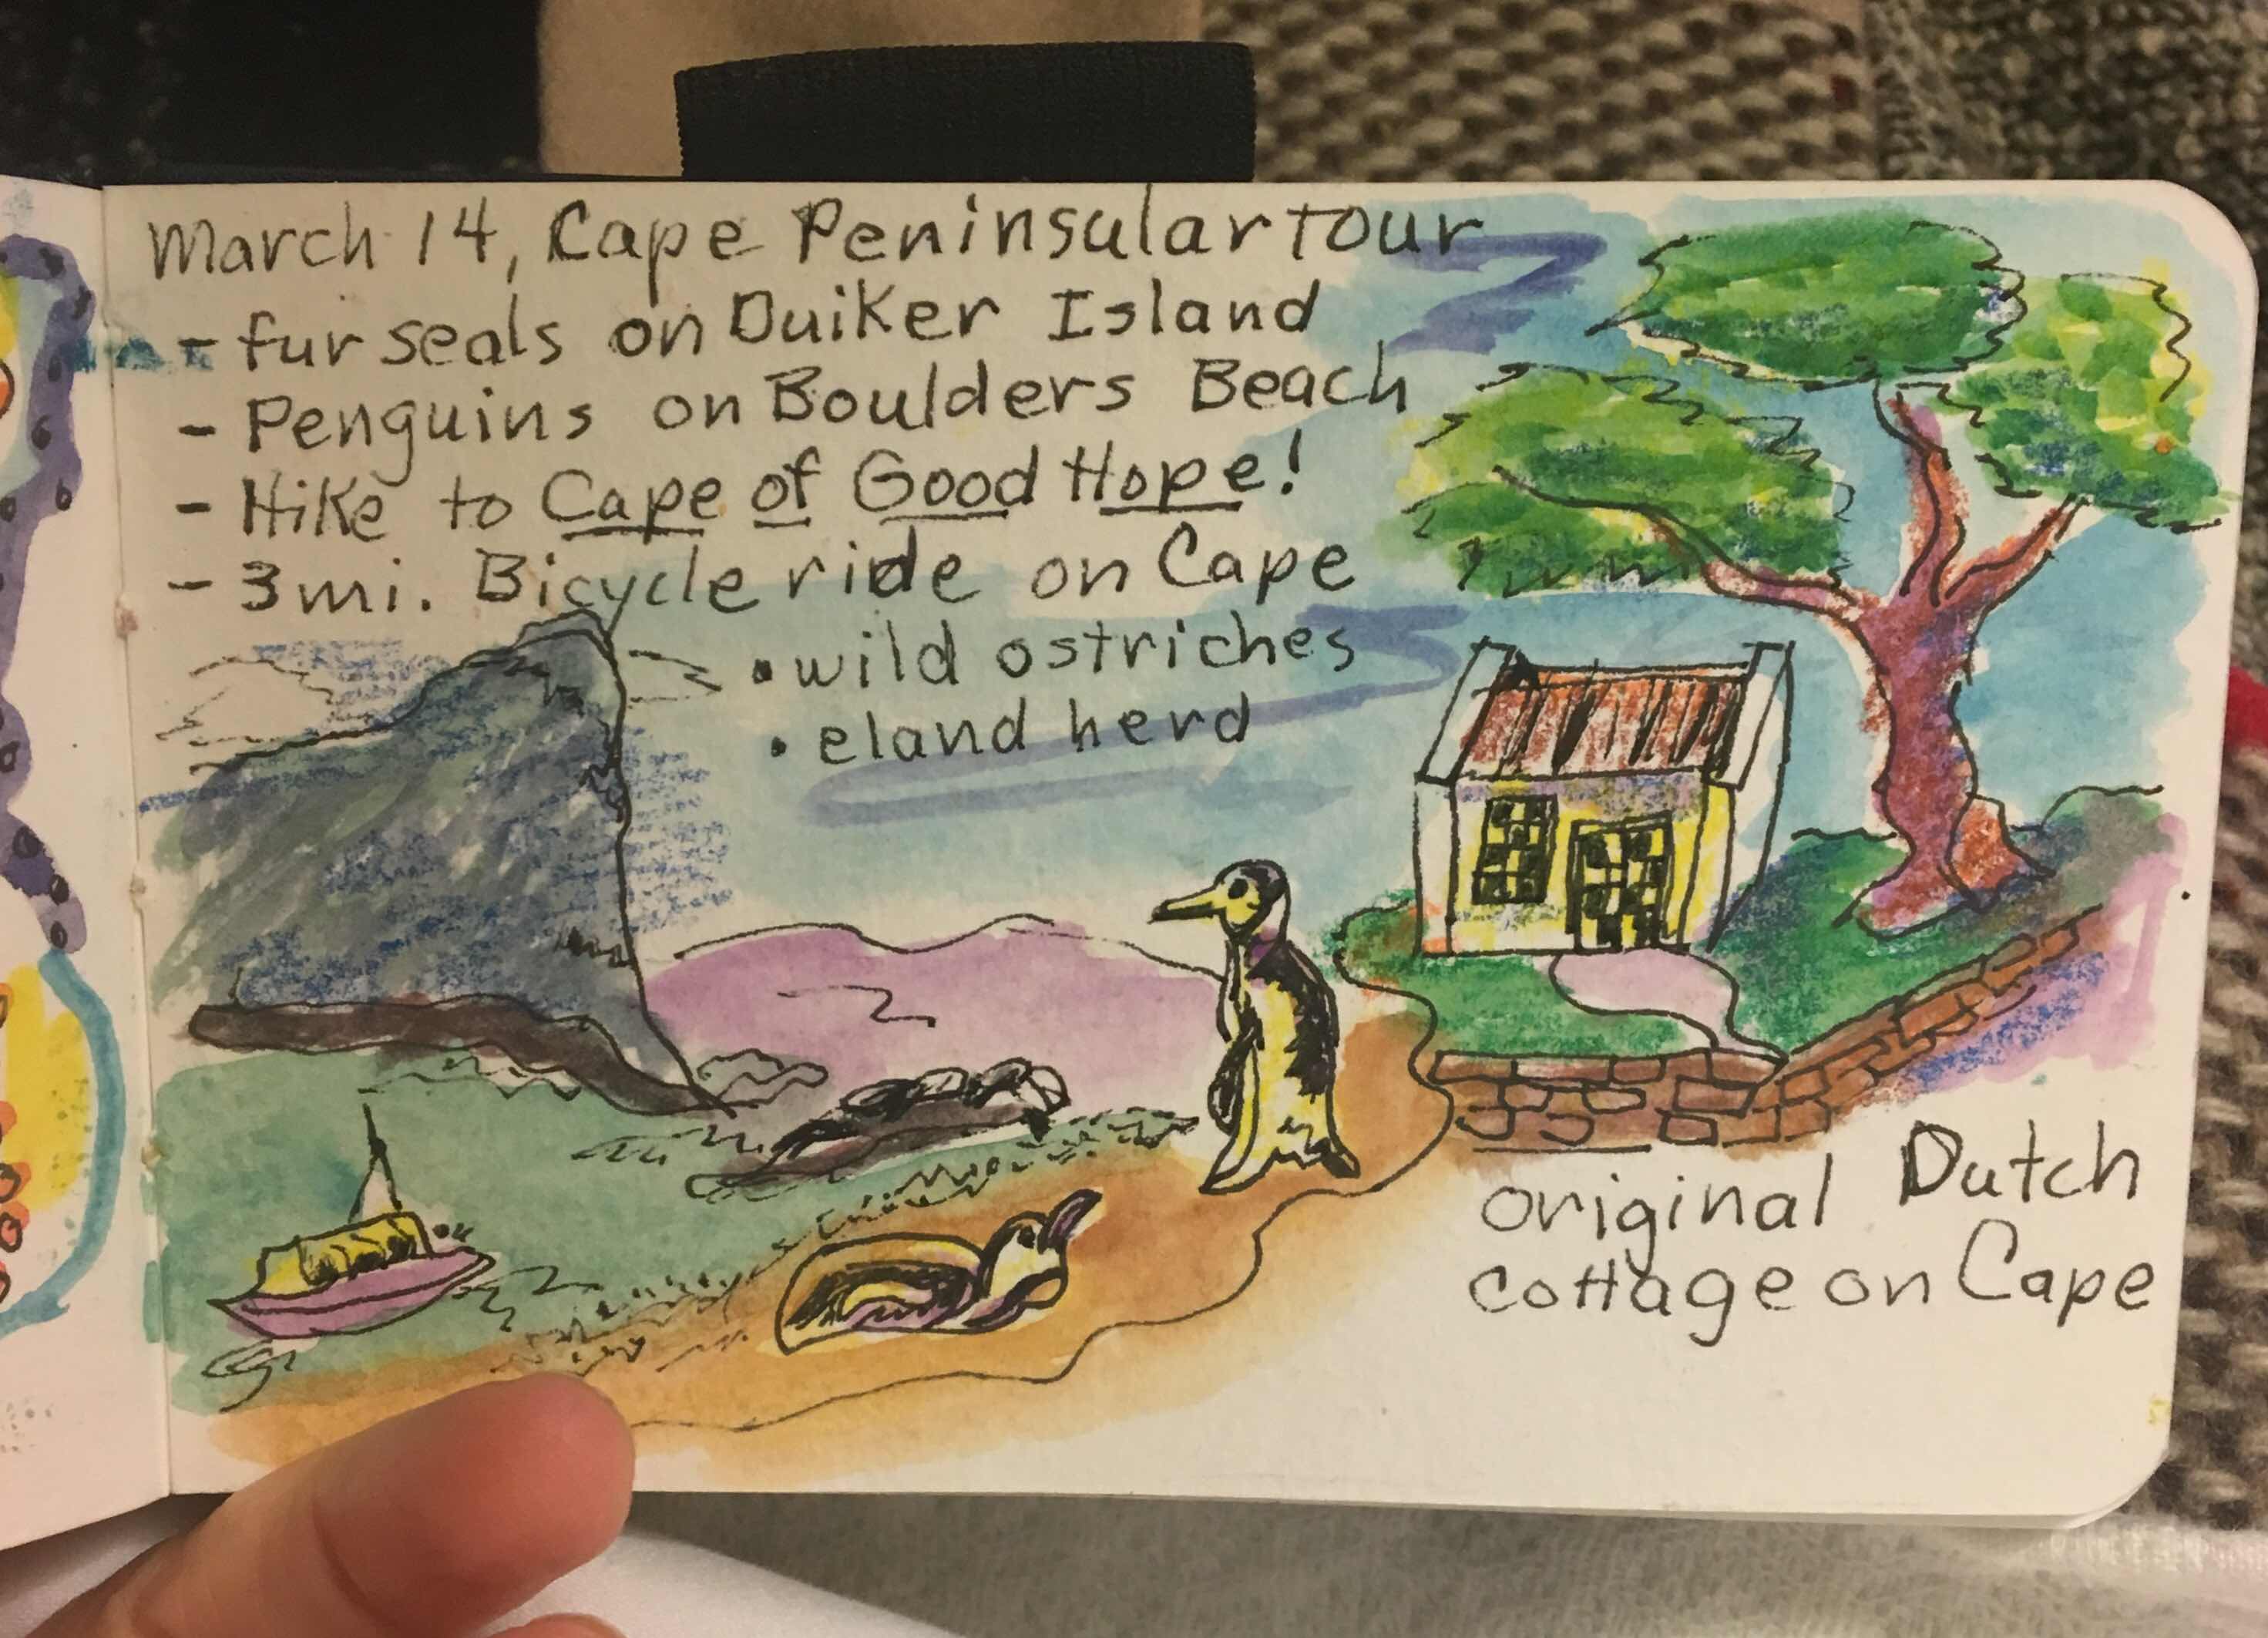 March 14, Cape Peninsular tour
- fur seals on Duiker Island
- Penguins on Boulders Beach
- Hike to Cape of Good Hope!
- 3mi. Bicycle ride on Cape
• wild ostriches
• eland herd
original Dutch
cottage on Cape